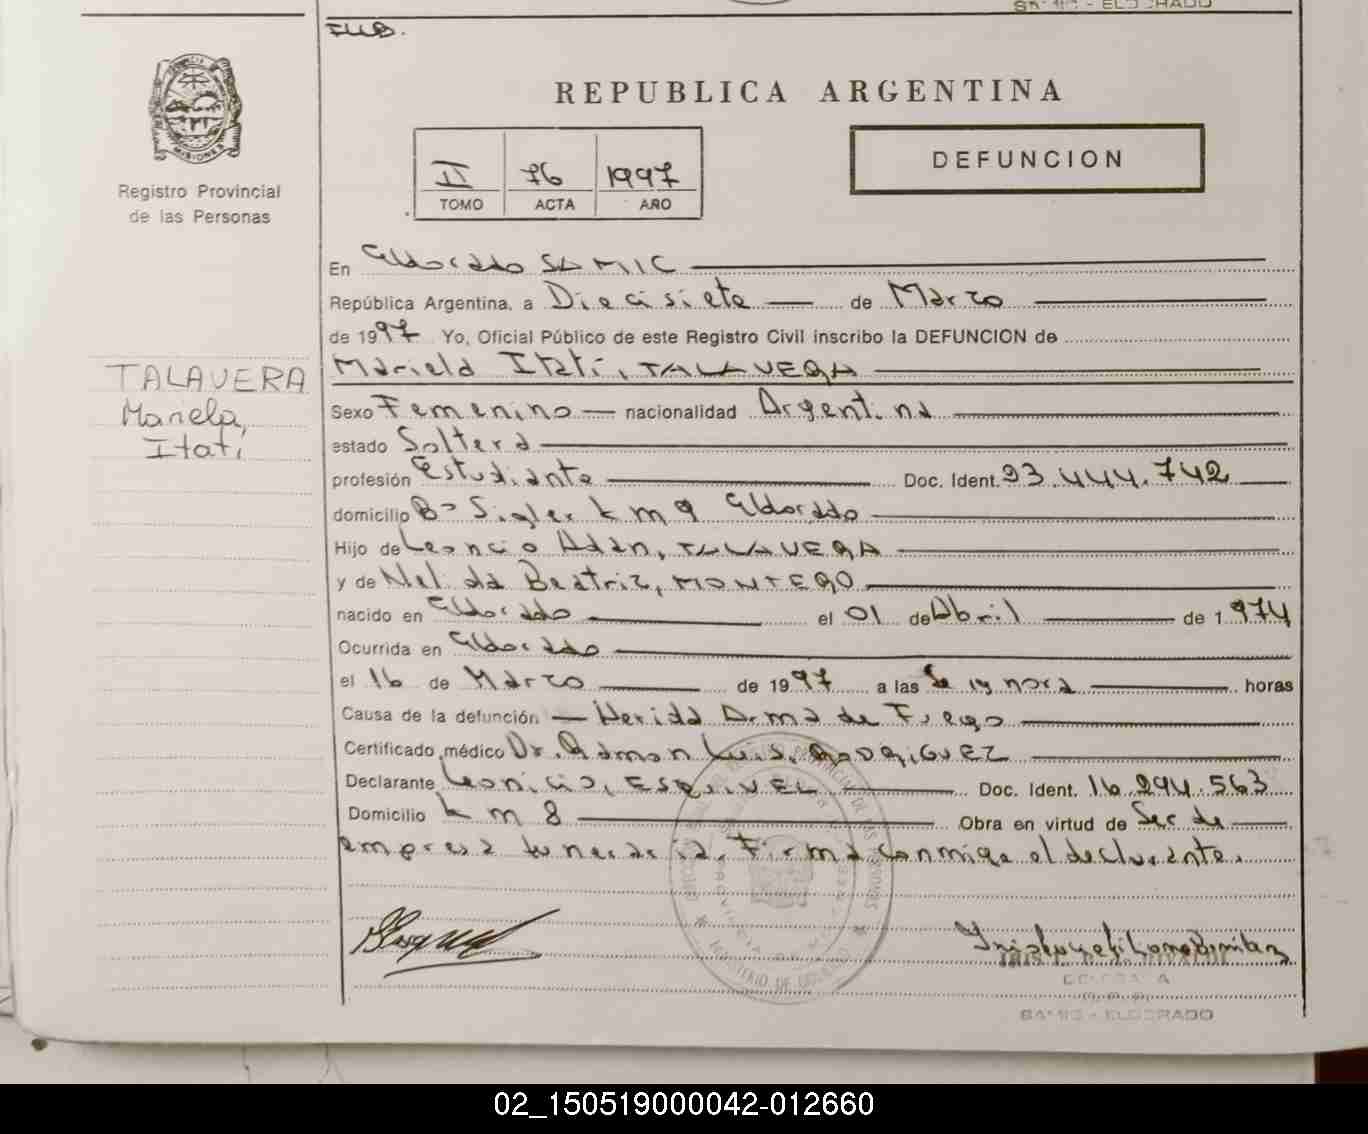 SAMIC - ELDORADO
REPUBLICA ARGENTINA
MISIONES
Registro Provincial
de las Personas
II 76 1997
TOMO ACTA AÑO
DEFUNCION
En Eldorado SAMIC
República Argentina, a Diecisiete de Marzo
de 1997 Yo, Oficial Público de este Registro Civil inscribo la DEFUNCION de
TALAVERA
Mariela,
Itatí
Mariela Itatí, TALAVERA
Sexo Femenino nacionalidad Argentina
estado Soltera
profesión Estudiante Doc. Ident. 23.444.742
domicilio Bº Sigler km 9 Eldorado
Hijo de Leoncio Adan, TALAVERA
y de Nelida Beatriz, MONTEGO
nacido en Eldorado el 01 de Abril de 1974
Ocurrida en Eldorado
el 16 de Marzo de 1997 a las Se ignora horas
Causa de la defunción Herida Arma de Fuego
Certificado médico Dr. Ramon Luis, RODRIGUEZ
Declarante Leonicio, ESQUIVEL Doc. Ident. 16.294.563
Domicilio km 8 Obra en virtud de Ser de
empresa funeraria. Firma conmigo el declarante.
SAMIC - ELDORADO
02_150519000042-012660